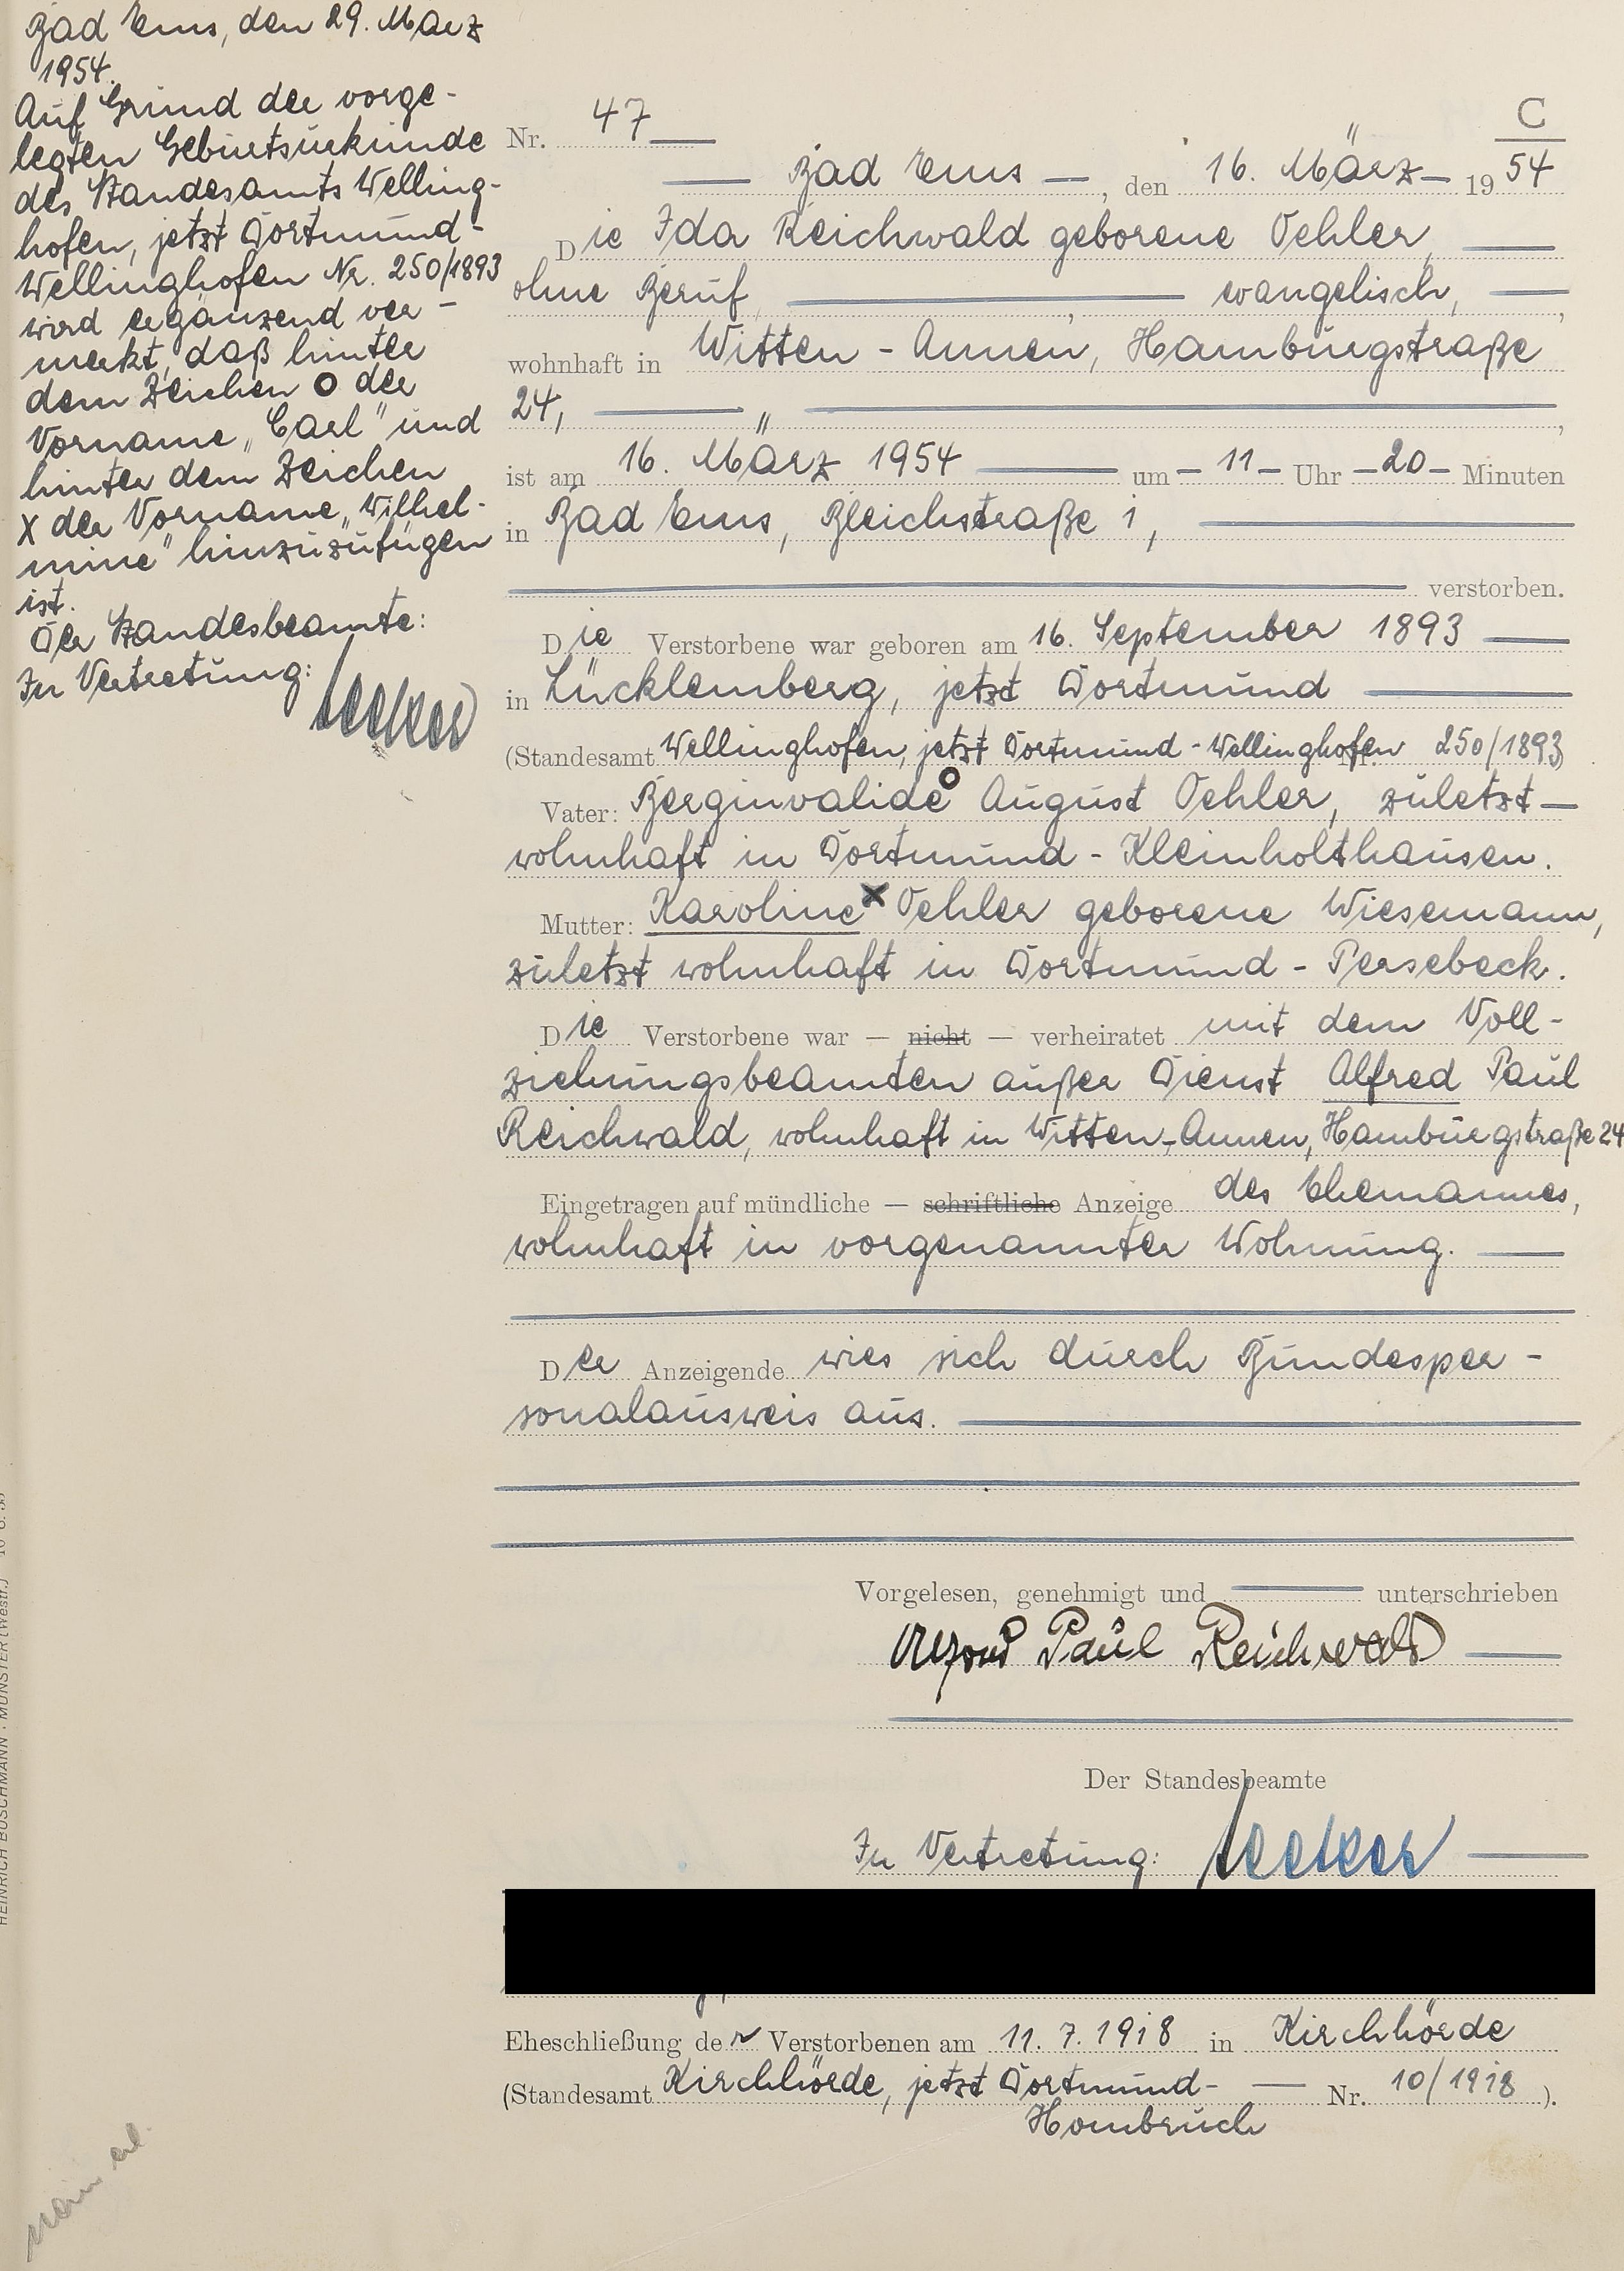 Bad Ems, den 29. März
1954.
Auf Grund der vorge-
legten Geburtsurkunde
des Standesamts Welling-
hofen, jetzt Dortmund-
Wellinghofen Nr. 250/1893
wird ergänzend ver-
merkt, daß hinter
dem Zeichen O der
Vorname „Carl" und
hinter dem Zeichen
X der Vorname „Wilhel-
mine" hinzuzufügen
ist.
Der Standesbeamte:
In Vertretung:
C
Nr. 47
Bad Ems, den 16. März 1954
Die Ida Reichwald geborene Oehler,
ohne Beruf, evangelisch,
wohnhaft in Witten - Annen, Hamburgstraße
24,
ist am 16. März 1954 um 11 Uhr 20 Minuten
in Bad Ems, Bleichstraße 1,
verstorben.
Die Verstorbene war geboren am 16. September 1893
in Lücklemberg, jetzt Dortmund
(Standesamt Wellinghofen, jetzt Dortmund - Wellinghofen Nr. 250/1893)
Vater: Berginvalide O August Oehler, zuletzt
wohnhaft in Dortmund - Kleinholthausen.
Mutter: Karoline X Oehler geborene Wiesemann,
zuletzt wohnhaft in Dortmund - Persebeck.
Die Verstorbene war — nicht — verheiratet mit dem Voll-
ziehungsbeamten außer Dienst Alfred Paul
Reichwald, wohnhaft in Witten-Annen, Hamburgstraße 24
Eingetragen auf mündliche — schriftliche Anzeige des Ehemannes,
wohnhaft in vorgenannter Wohnung.
Der Anzeigende wies sich durch Bundesper-
sonalausweis aus.
Vorgelesen, genehmigt und unterschrieben
Alfred Paul Reichwald
Der Standesbeamte
In Vertretung:
Eheschließung der Verstorbenen am 11. 7. 1918 in Kirchhörde
(Standesamt Kirchhörde, jetzt Dortmund- Nr. 10/1918).
Hombruch
HEINRICH BUSCHMANN · MÜNSTER (Westf.)